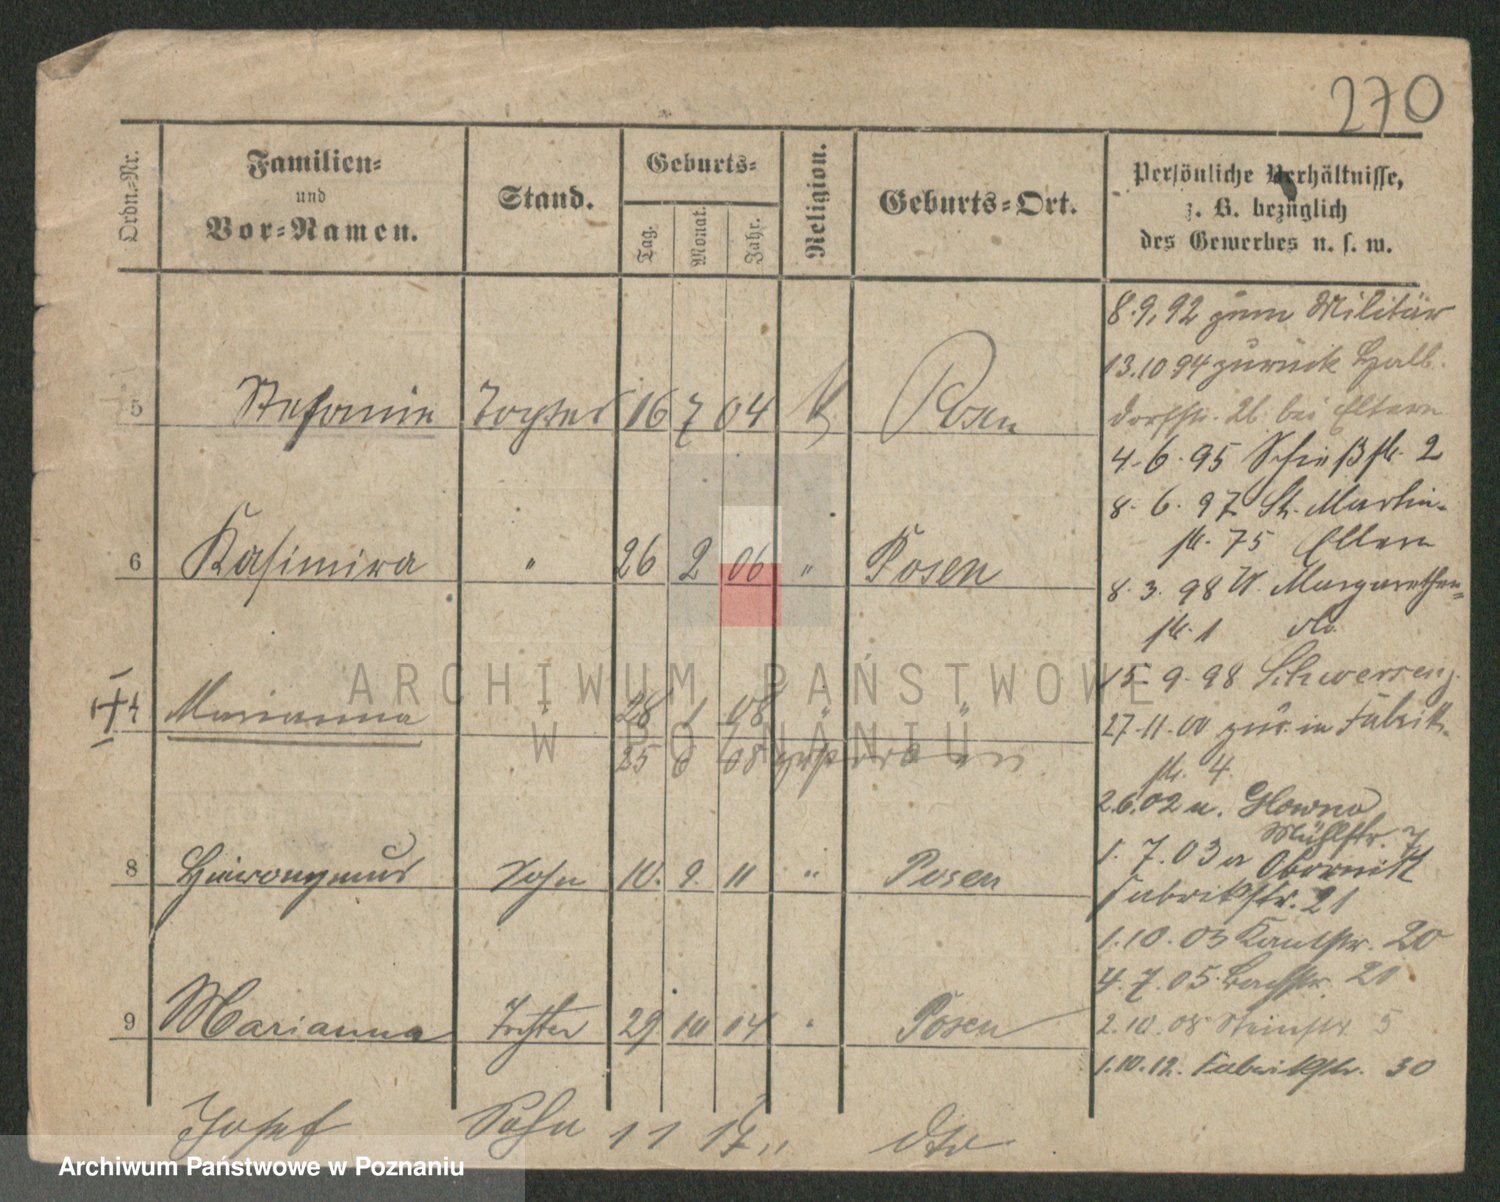 270
Ordn.-Nr.
Familien-
und
Vor-Namen.
Stand.
Geburts-
Tag.
Monat.
Jahr.
Religion.
Geburts-Ort.
Persönliche Verhältnisse,
z. B. bezüglich
des Gewerbes u. s. w.
5 Stefanie Tochter 16 7 04 k Posen
6 Kasimira " 26 2 06 " Posen
7 Marianna 28 1 08 " "
25 6 08 gestorben
8 Hieronymus Sohn 10. 9. 11 " Posen
9 Marianna Tochter 29 10 14 " Posen
Josef Sohn 11 17 " dto
8.9.92 zum Militär
13.10 94 zurück Halb-
dorfstr. 26 bei Eltern
4.6.95 Schießstr. 2
8.6.97 St. Martin-
str. 75 Eltern
8.3.98 W. Margarethen-
str. 1 do.
15.9.98 Schwersenz.
27.11.00 zur. in Fabrik-
str. 4.
2.6.02 n. Glowno
Mühlstr. 7
1.7.03 n Obornik
Fabrikstr. 21
1.10.03 Kantstr. 20
4.7.05 Bachstr. 21
2.10.08 Steinstr. 5
1.10.12. Fabrikstr. 30
ARCHIWUM PAŃSTWOWE
W POZNANIU
Archiwum Państwowe w Poznaniu